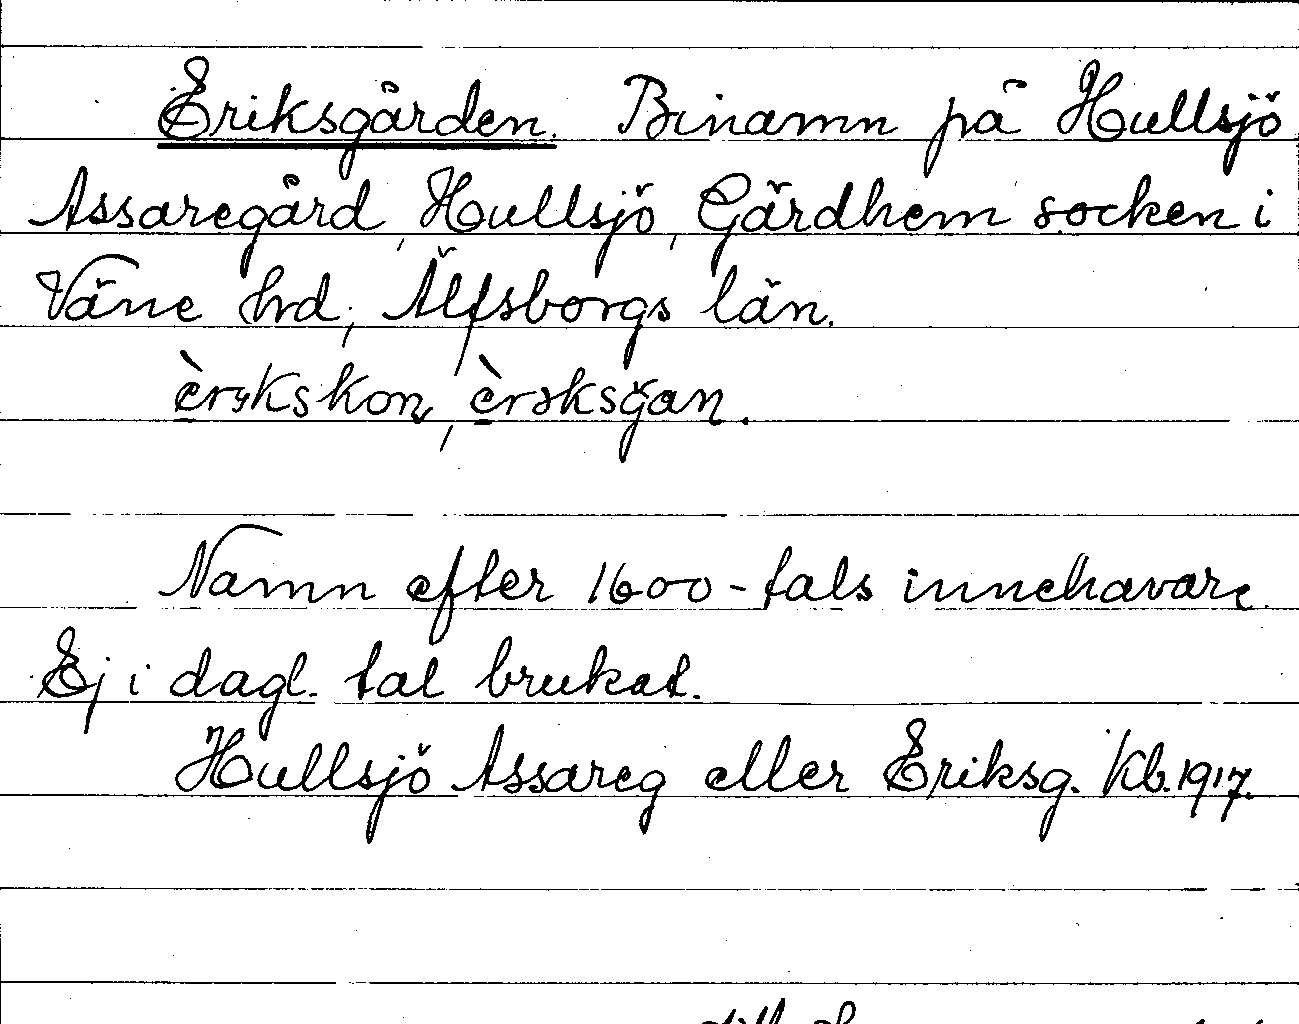 Eriksgården. Binamn på Hullsjö
Assaregård, Hullsjö, Gärdhem socken i
Väne hrd, Älfsborgs län.
Namn efter 1600-tals innehavare
Ej i dagl. tal brukat.
Hullsjö Assareg eller Eriksg. Kb. 1917.